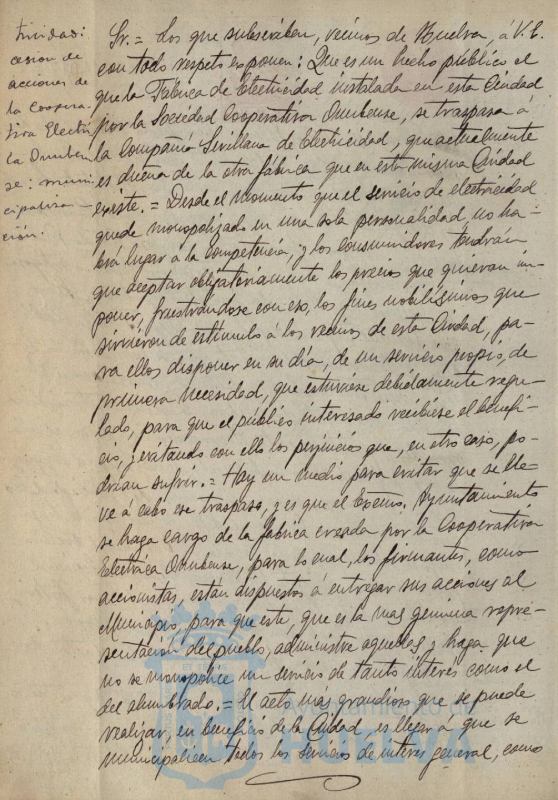 trividad:
cesion de
acciones de
la Coopera-
tiva Electri
ca Onuben
se: muni
cipaliza-
ción.
Sr. = Los que subscriben, vecinos de Huelva, á V.E.
con todo respeto exponen: Que es un hecho público el
que la Fábrica de Electricidad instalada en esta Ciudad
por la Sociedad Cooperativa Onubense, se traspasa á
la Compañía Sevillana de Electricidad, que actualmente
es dueña de la otra fábrica que en esta misma Ciudad
existe. = Desde el momento que el servicio de electricidad
quede monopolizado en una sola personalidad, no ha-
brá lugar á la competencia, y los consumidores tendrán
que aceptar obligatoriamente los precios que quieran im-
poner, frustrandose con eso, los fines nobilísimos que
sirvieron de estímulo á los vecinos de esta Ciudad, pa-
ra ellos disponer en su día, de un servicio propio, de
primera necesidad, que estuviese debidamente regu-
lado, para que el público interesado recibiese el benefi-
cio, evitando con ello los perjuicios que, en otro caso, po-
drían sufrir. = Hay un medio para evitar que se lle-
ve á cabo ese traspaso, y es que el Excmo. Ayuntamiento
se haga cargo de la fábrica creada por la Cooperativa
Electrica Onubense, para lo cual, los firmantes, como
accionistas, están dispuestos á entregar sus acciones al
Municipio, para que este, que es la mas genuina repre-
sentación del pueblo, administre aquellas y haga que
no se monopolice un servicio de tanto interés como el
del alumbrado. = El acto más grandioso que se puede
realizar, en beneficio de la Ciudad, es llegar á que se
municipalicen todos los servicios de interés general, como